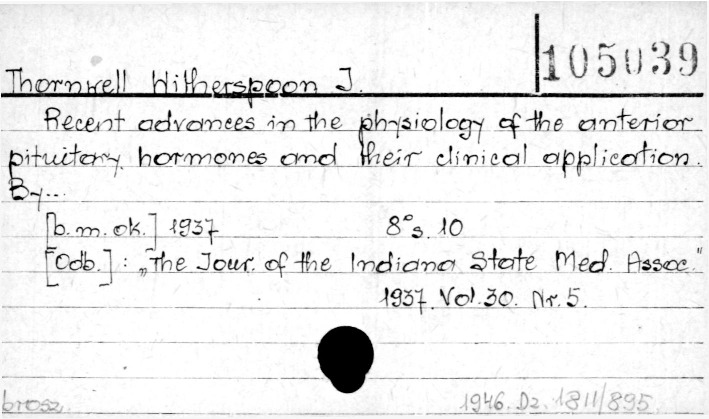 105039
Thornwell Witherspoon J.
Recent advances in the physiology of the anterior
pituitary hormones and their clinical application.
By...
[b.m.ok.] 1937 8° s. 10
[Odb.]: „The Jour. of the Indiana State Med. Assoc."
1937. Vol. 30. Nr. 5.
brosz. 1946. Dz. 1811/895